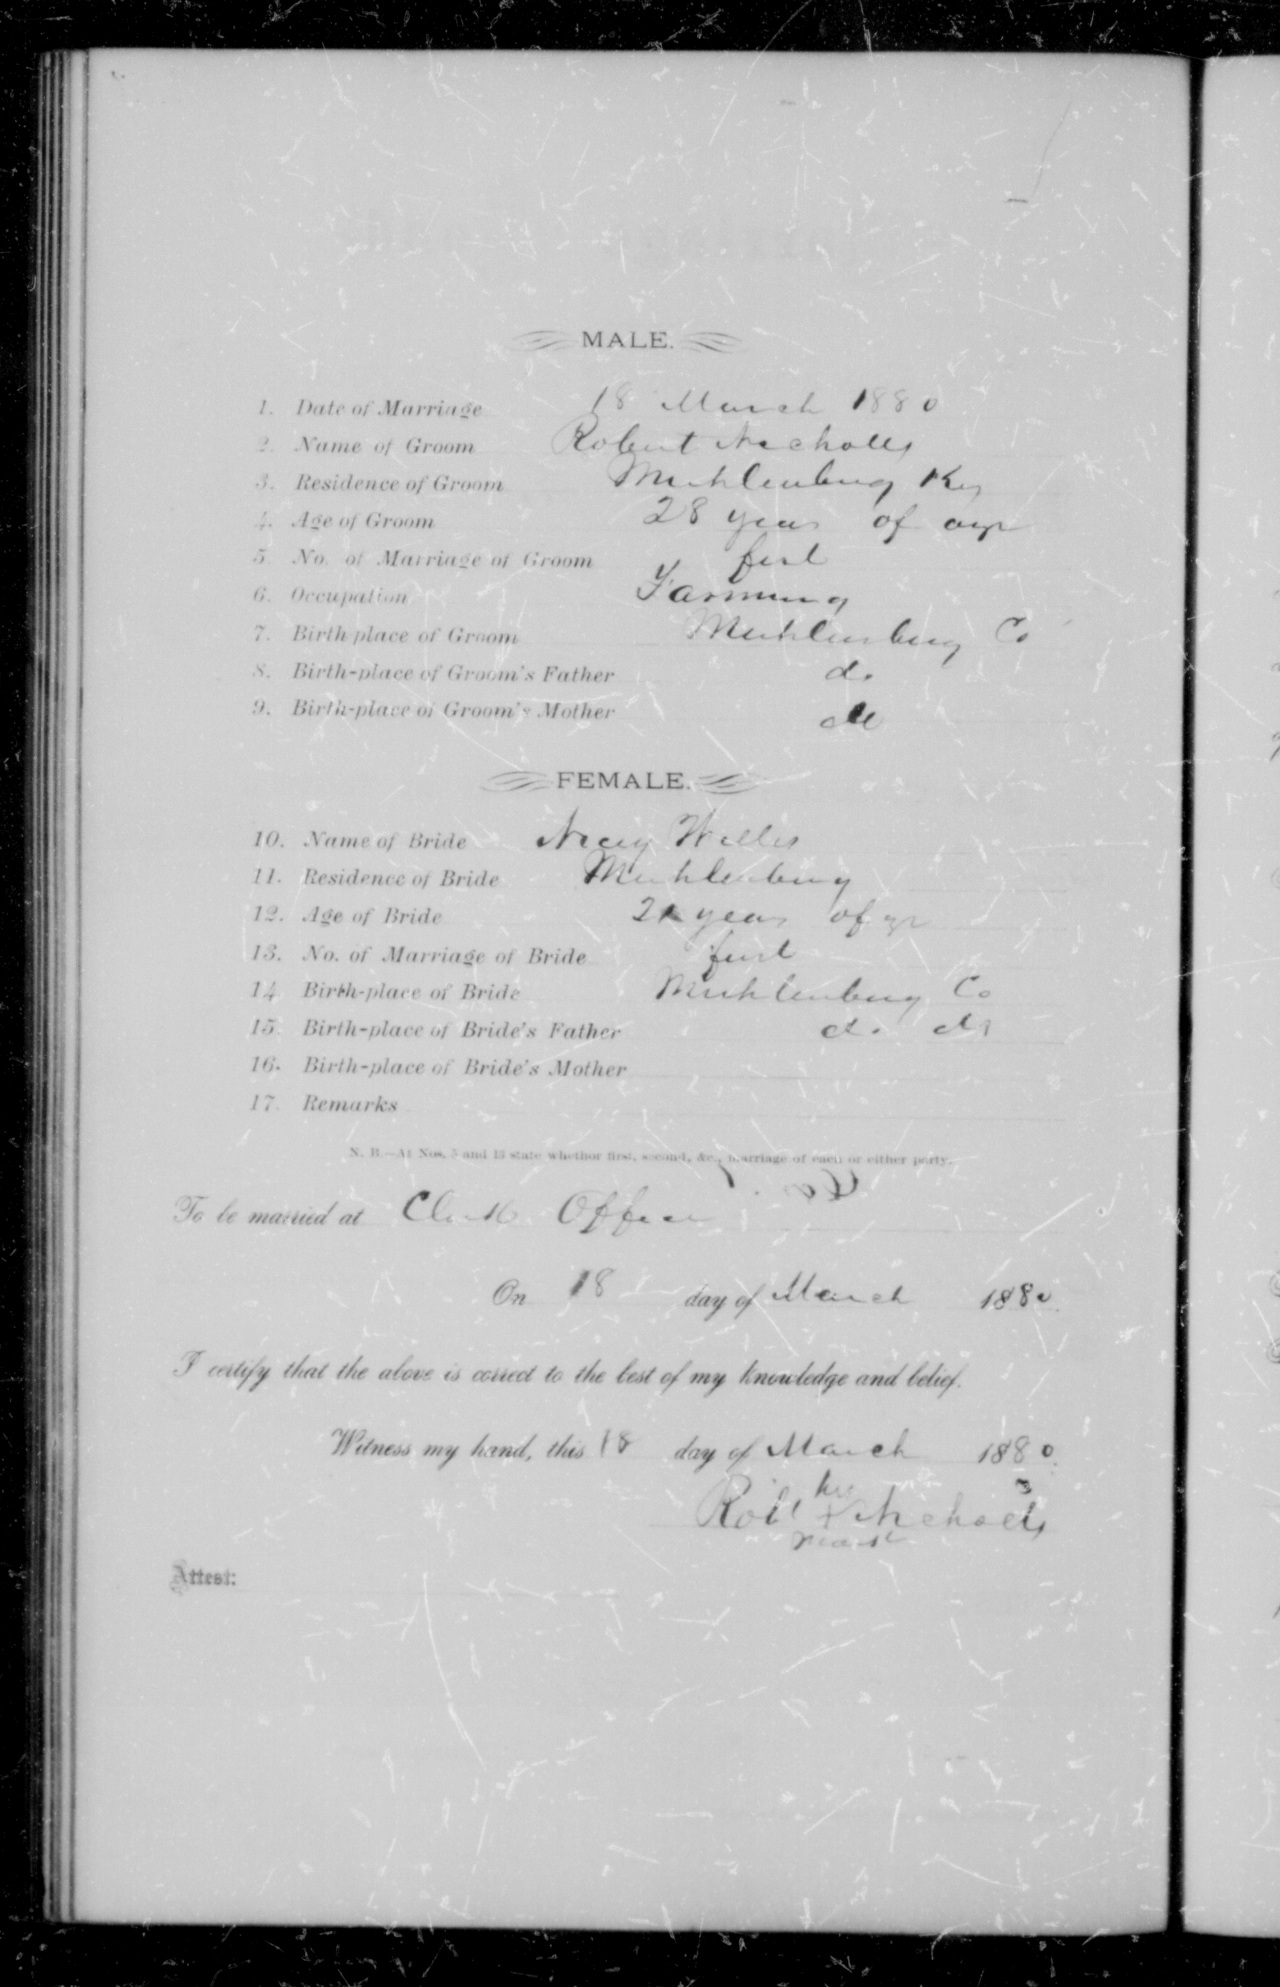 MALE.
1. Date of Marriage 18 March 1880
2. Name of Groom Robert Nicholls
3. Residence of Groom Muhlenburg Ky
4. Age of Groom 28 years of age
5. No. of Marriage of Groom first
6. Occupation Farming
7. Birth-place of Groom Muhlenburg Co
8. Birth-place of Groom's Father do
9. Birth-place of Groom's Mother do
FEMALE.
10. Name of Bride Willis
11. Residence of Bride Muhlenburg
12. Age of Bride years of age
13. No. of Marriage of Bride first
14. Birth-place of Bride Muhlenburg Co
15. Birth-place of Bride's Father do do
16. Birth-place of Bride's Mother
17. Remarks
N. B.—At Nos. 5 and 13 state whether first, second, &c., marriage of each or either party.
To be married at Clerk Office
On 18 day of March 1880.
I certify that the above is correct to the best of my knowledge and belief.
Witness my hand, this 18 day of March 1880.
his
Robt x Nichols
mark
Attest: